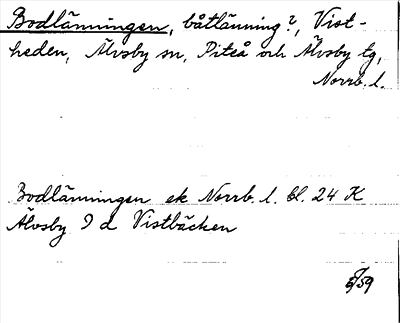 Bodlänningen, båtlänning?, Vist-
heden, Älvsby sn, Piteå och Älvsby tg,
Norrb. l.
Bodlänningen ek Norrb. l. bl. 24 K
Älvsby 9 d Vistbäcken
/59